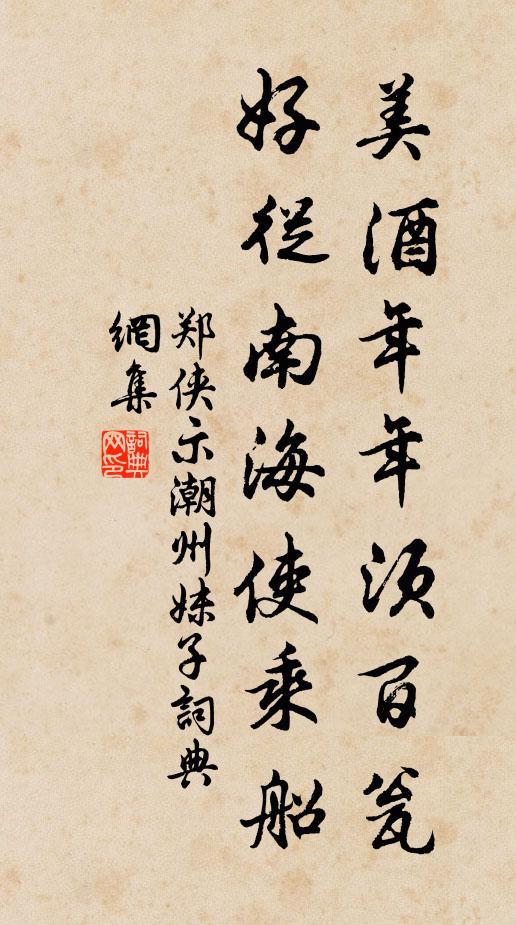 美酒年年须百瓮
好從南海使乘船
郑侠示潮州妹子詞典
網集
詞典
网印